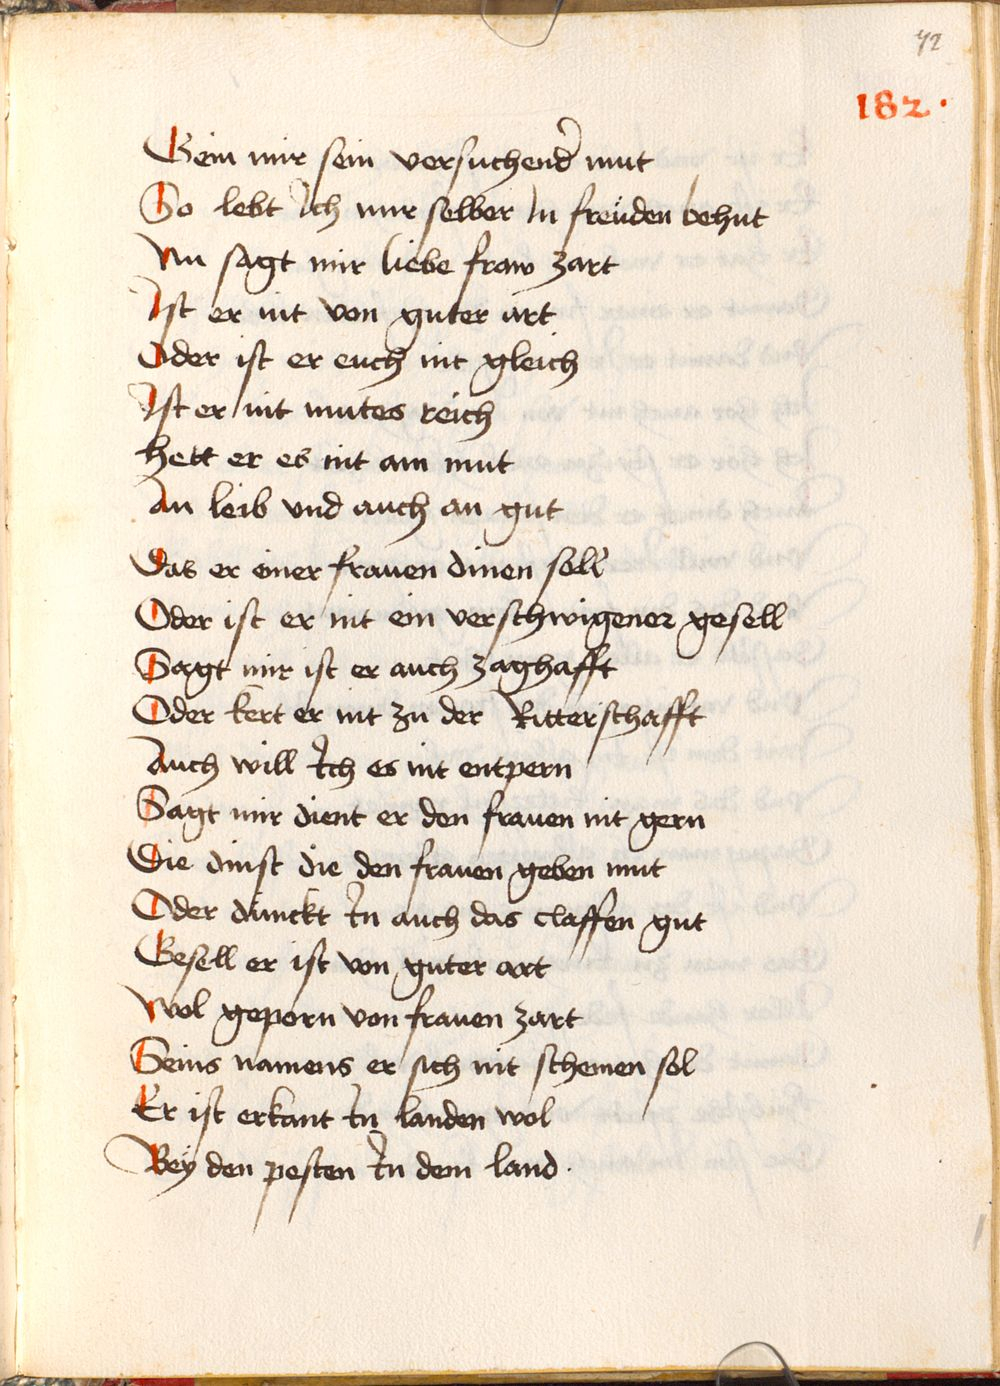 72
182.
Gein mir sein versuchend' mut
So lebt Ich mir selber In freüden behut
Nu sagt mir liebe fraw zart
Ist er nit von guter art
Oder ist er euch nit gleich
Ist er nit mutes reich
Hett er es nit am mut
An leib vnd auch an gut
Das er einer frauen dinen soll
Oder ist er nit ein verschwigener gesell
Sagt mir ist er auch zaghafft
Oder kert er nit zu der Ritterschafft
Auch will Ich es nit entpern
Sagt mir dient er den frauen nit gern
Die dinst die den frauen geben mut
Oder dunckt In auch das claffen gut
Gesell er ist von guter art
Wol geporn von frauen zart
Seins namens er sich nit schemen sol
Er ist erkant In landen wol
Bey den pesten In dem land.